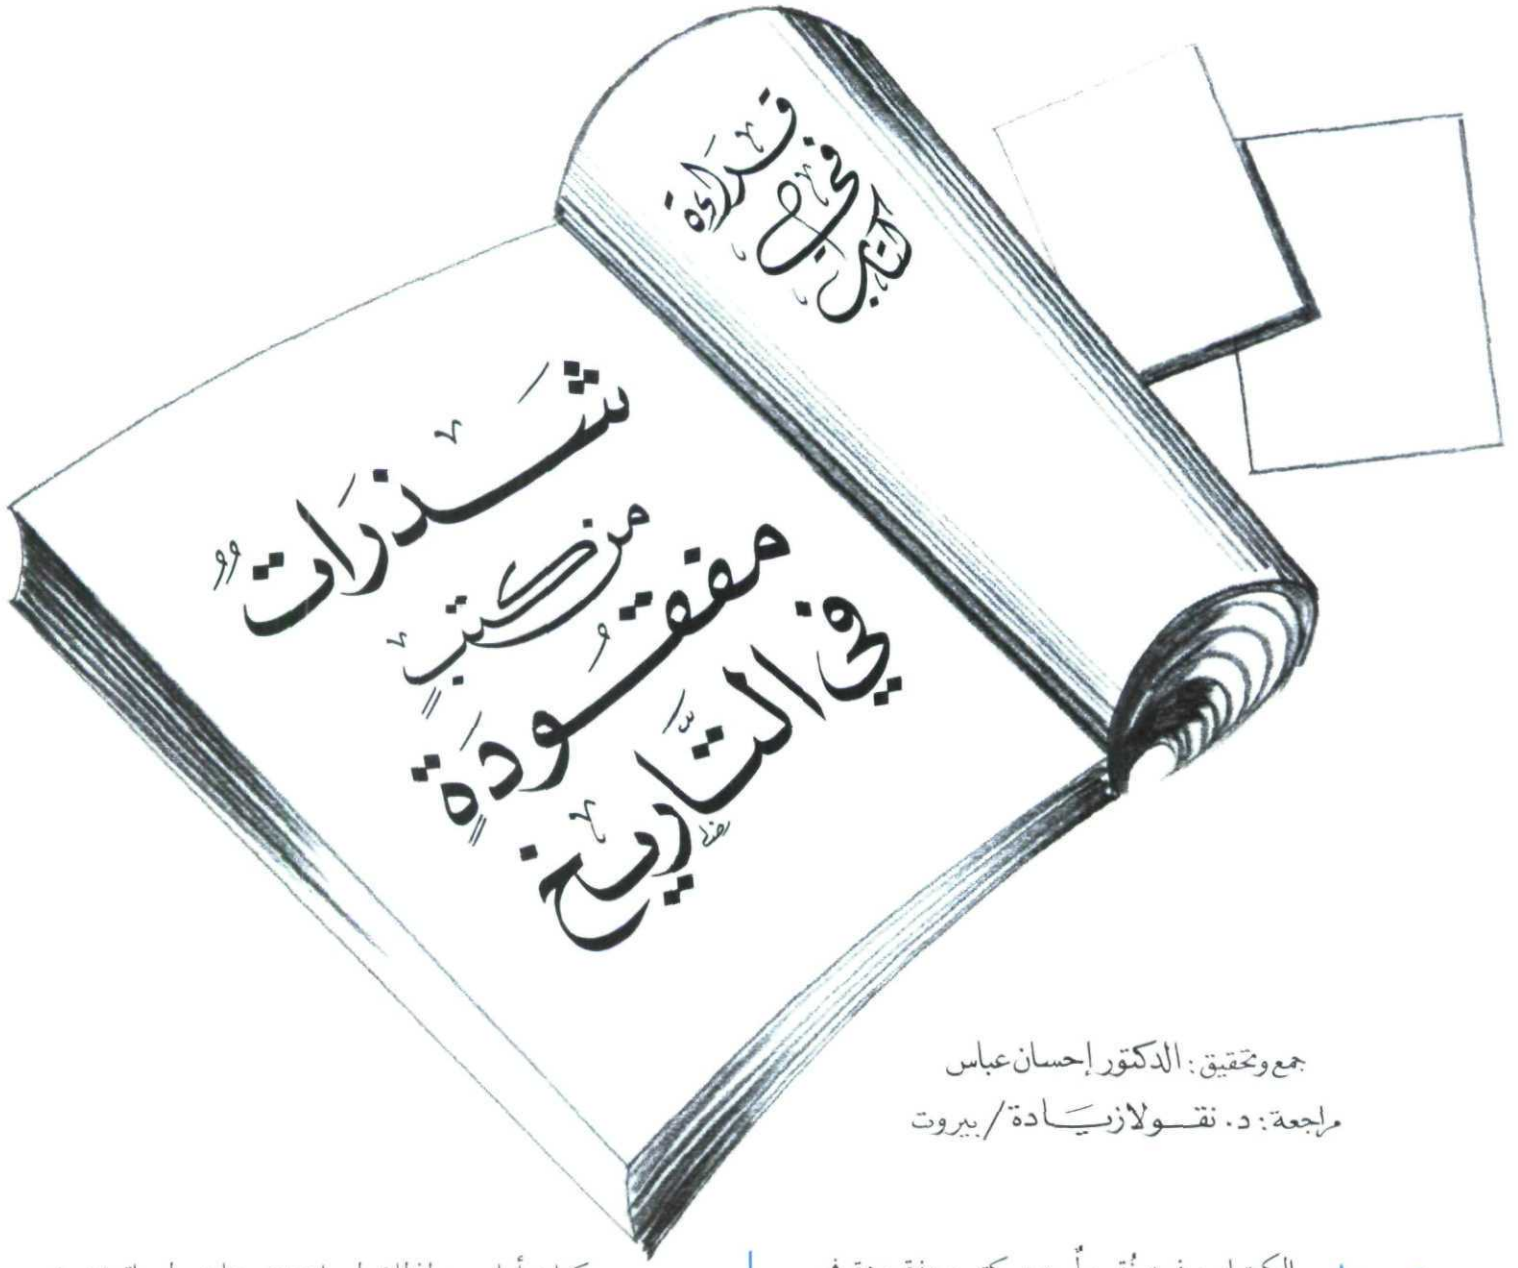 قراءة
في
كتاب
شذراتٌ
من كتبٍ
مفقودةٍ
في التّاريخ
جمع وتحقيق: الدكتور إحسان عباس
مراجعة: د. نقولا زيادة / بيروت